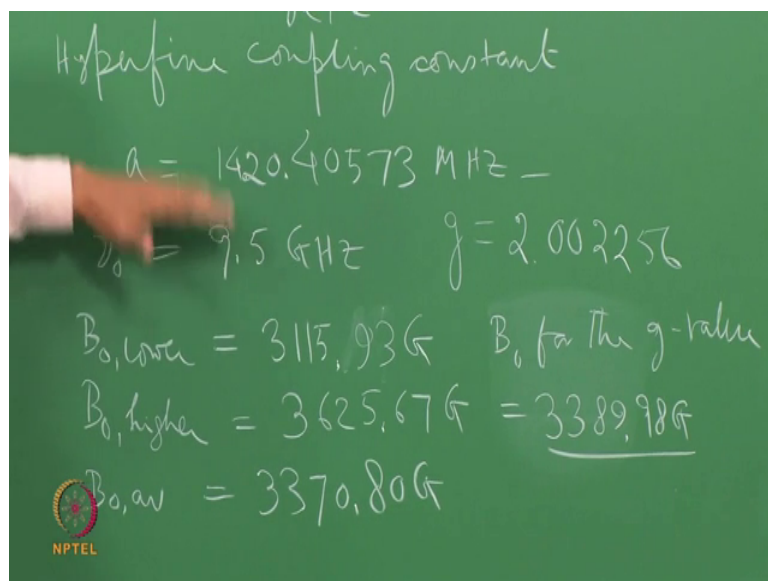 Hyperfine coupling constant
a = 1420.40573 MHZ
= 9.5 GHZ g = 2.002256
B0,lower = 3115.93G B0 for the g-value
B0,higher = 3625.67G = 3389.98G
B0,av = 3370.80G
NPTEL